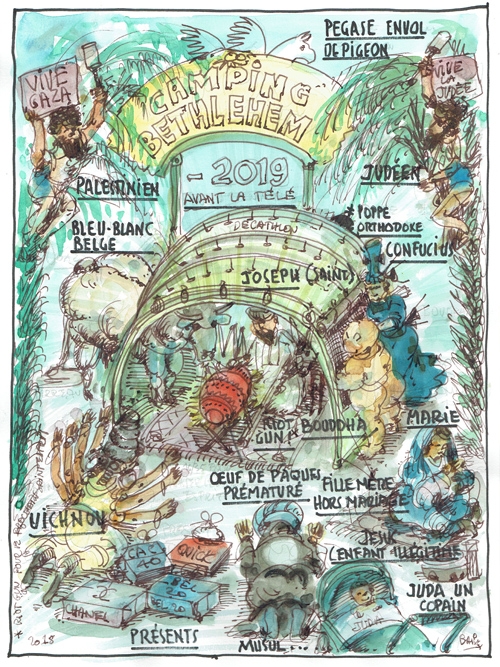 PEGASE ENVOL
DE PIGEON
VIVE
GAZA
VIVE
LA
JUDÉE
CAMPING
BETHLEHEM
- 2019
AVANT LA TÉLÉ
PALESTINIEN
JUDÉEN
BLEU-BLANC
BELGE
* POPPE
ORTHODOXE
CONFUCIUS
DECATHLON
JOSEPH (SAINT)
RIOT
GUN
BOUDDHA
MARIE
OEUF DE PAQUES
PRÉMATURÉ
FILLE MÈRE
HORS MARIAGE
VICHNOU
JESUS
L'ENFANT ILLÉGITIME
CAC
40
QUICK
BEL
20
BEL 20
JUDA UN
COPAIN
JUDA
PRÉSENTS
MUSUL...
2018